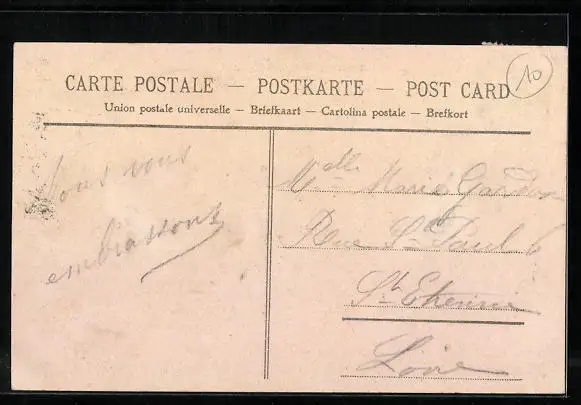 CARTE POSTALE — POSTKARTE — POST CARD
10
Union postale universelle — Briefkaart — Cartolina postale — Brefkort
Nous vous
embrassons
Mdlle Marie
Rue St Paul 6
St Etienne
Loire